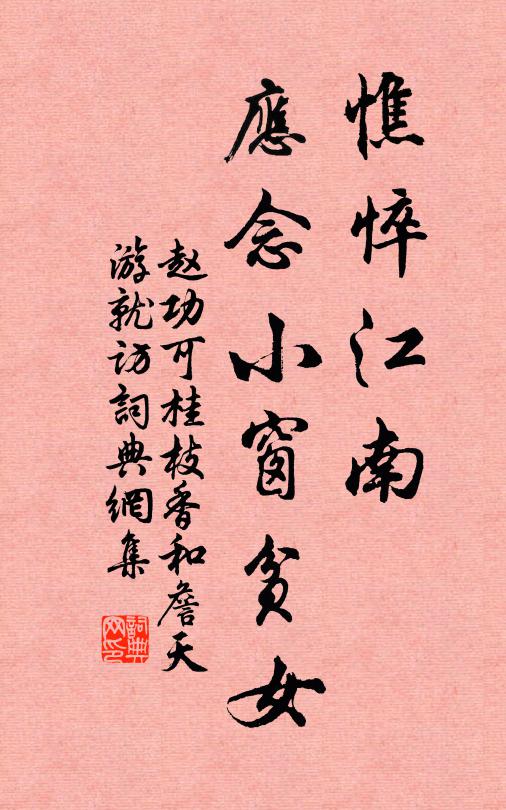 憔悴江南
應念小窗貧女
赵功可桂枝香和詹天
游就訪詞典網集
詞典
网印